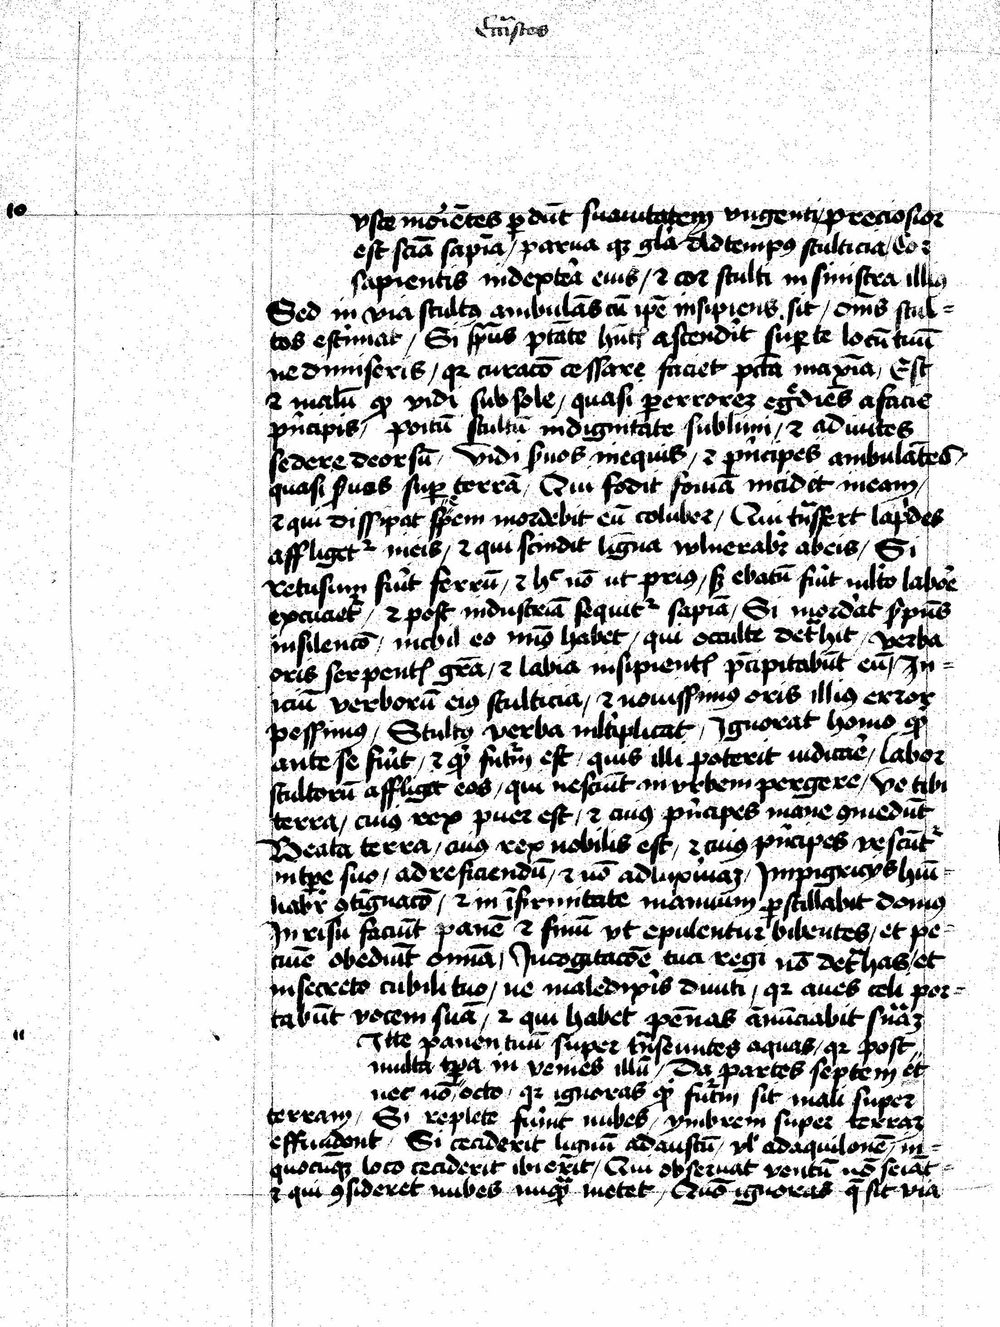 Ecc̄astes
10
usce moriētes p̲dūt suauitatem ungenti / preciosior
est sciā sapīa / parua qꝫ glā Ad tempꝰ stulticia / Cor
sapientis in dextera eius / ⁊ cor stulti in sinistra illiꝰ
Sed in via stultꝰ ambulās cū ipē insipiens sit / om̄s stul=
tos estimat / Si sp̄us ptāte hn̄tꝭ ascendit sup̲ te locū tuū
ne dimiseris / qꝛ curacō cessare faciet pctā maxīa / Est
⁊ malū qͦ vidi sub sole / quasi p̲ errorez egͬdiēs a facie
pͥncipis / poitū stultū in dignitate sublimi / ⁊ ad uites
sedere deorsū / Vidi s̄uos in equis / ⁊ pͥncipes ambulātes
quasi s̄uos sup̲ terrā / Qui fodit foueā incidet in eam /
⁊ qui dissipat sepem mordebit eū coluber / Qui tͣnsfert lapides
affligetᷣ in eis / ⁊ qui scindit ligna vulnerabitᷣ ab eis / Si
retusum fuīt ferrū / ⁊ hͨ nō ut prius / sꝫ ebatū fuīt mlto labōe
excucietᷣ / ⁊ post industriā sequitᷣ sapīa / Si mordāt s̄pēs
in silencō / nichil eo minꝰ habet / qui occulte detͣhit / verba
oris serpentꝭ grā / ⁊ labia insipientꝭ p̄cipitabūt eū / In=
iciū verborū eiꝰ stulticia / ⁊ nouissimꝰ oris illiꝰ error
pessimꝰ / Stultꝰ verba mltiplicat / Ignorat homo qͥ
ante se fuīt / ⁊ qͥ futᷣm est / quis illi poterit iudicare / Labor
stultorū affliget eos / qui nesciūt in vrbem pergere / Ve tibi
terra / cuiꝰ rex puer est / ⁊ cuiꝰ pͥncipes mane ꝯmedūt
Beata terra / cuiꝰ rex nobilis est / ⁊ cuiꝰ pͥncipes vescūtᷣ
in tp̄e suo / ad reficiendū / ⁊ nō ad luxuriaz / In pigricijs hūi=
liabitᷣ ꝯtignacō / ⁊ in īfirmitate manuum p̲stillabit domꝰ
In risu faciūt panē ⁊ sinū vt epulentur bibentes / et pe=
cunē obediūt omīa / In cogitacōe tua regi nō detͣhas / et
in secreto cubili tuo / ne maledixīs diuiti / qꝛ aues celi por=
tabūt vocem suā / ⁊ qui habet pēnas ānūciabit sn̄iāz
11
Itte panen tuū super tͣnseuntes aquas / qꝛ post
multa tp̄a in venies illū / Da partes septem et
nec nō octo / qꝛ ignoras qͥ futᷣm sit mali super
terram / Si replete fuīnt nubes / ymbrem super terraz
effundent / Si ceciderit lignū ad austū / vl̄ ad aquilonē / in=
quocūqꝫ loco ceciderit ibi erit / Qui obseruat ventū nō seīat=
⁊ qui ꝯsideret nubes nuqͣ metet / Quō ignoras qͣ sit via